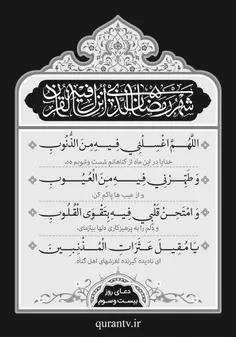 شهر رمضان الذی انزل فیه القرآن
اللَّهُمَّ اغْسِلْنِي فِيهِ مِنَ الذُّنُوبِ
خدایا در این ماه از گناهانم شست وشویم ده،
وَ طَهِّرْنِي فِيهِ مِنَ الْعُيُوبِ
و از عیب ها پاکم کن،
وَ امْتَحِنْ قَلْبِي فِيهِ بِتَقْوَى الْقُلُوبِ
و دلم را به پرهیزکاری دلها بیازمای،
يَا مُقِيلَ عَثَرَاتِ الْمُذْنِبِينَ
ای نادیده گیرنده لغزشهای اهل گناه.
دعای روز
بیست وسوم
qurantv.ir